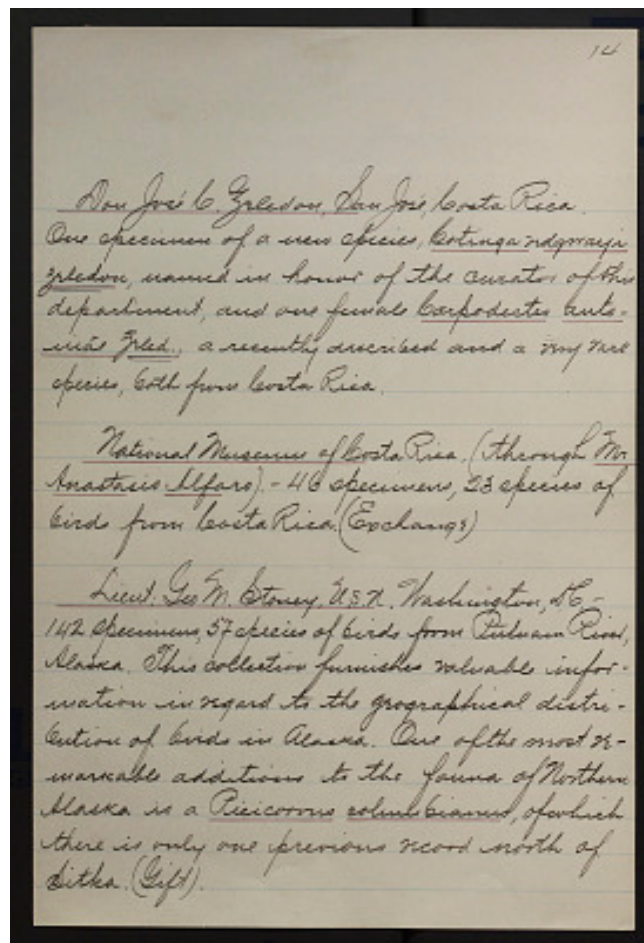 14
Don José C. Zeledon, San José, Costa Rica.
One specimen of a new species, Cotinga ridgwayi
Zeledon, named in honor of the curator of this
department, and one female Carpodectes anto-
niae Zeled., a recently described and a very rare
species, both from Costa Rica.
National Museum of Costa Rica. (through Mr.
Anastasio Alfaro). - 46 specimens, 23 species of
birds from Costa Rica. (Exchange)
Lieut. Geo. M. Stoney, U.S.N. Washington, DC -
142 specimens, 57 species of birds from Putnam River,
Alaska. This collection furnishes valuable infor-
mation in regard to the geographical distri-
bution of birds in Alaska. One of the most re-
markable additions to the fauna of Northern
Alaska is a Picicorvus columbianus, of which
there is only one previous record north of
Sitka. (Gift).